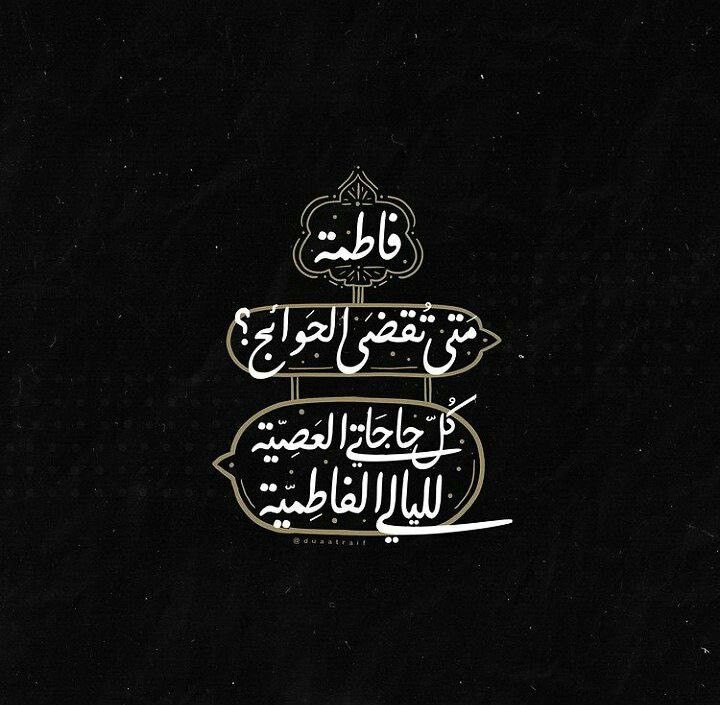 فاطمة
مَتى تُقضَى الحَوائج؟
كُلّ حاجَاتي العَصِيّة
لليالي الفاطِميّة
@duaatraif